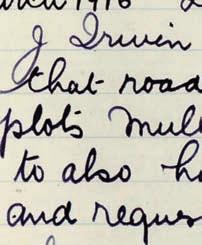 1916
J Irwin
that road
plots mul
to also h
and reques